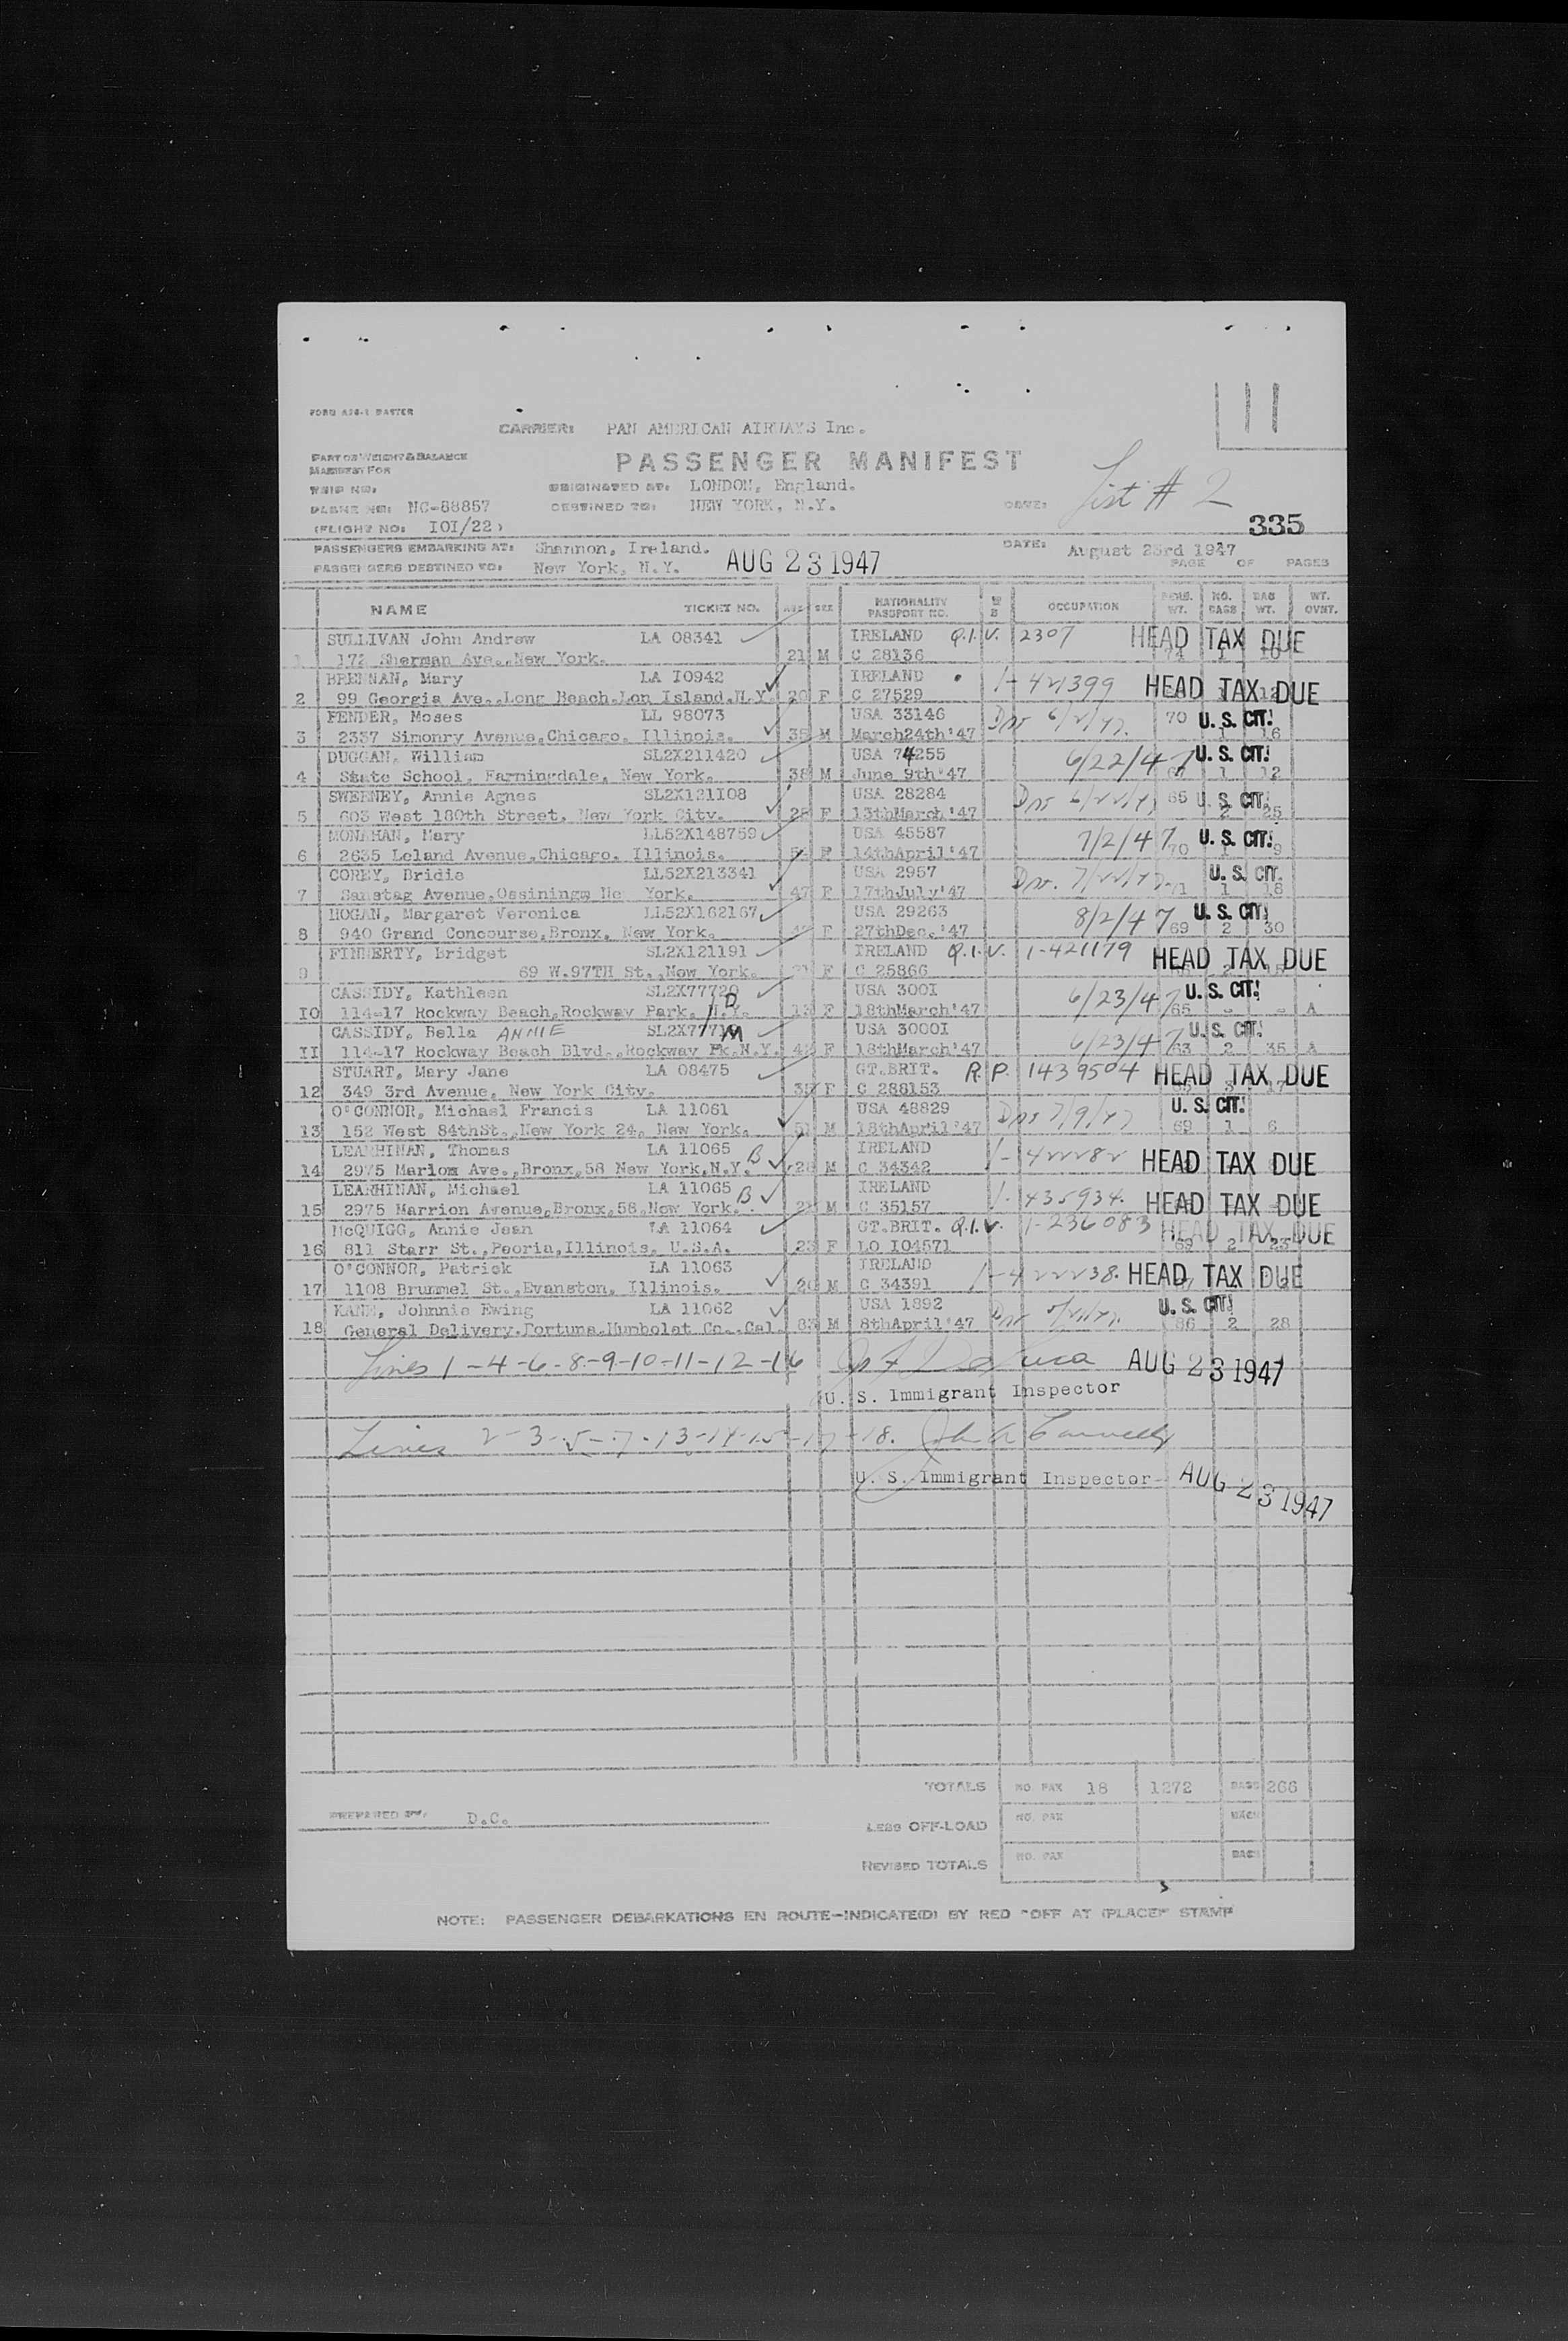 FORM A26-1 MASTER
CARRIER: PAN AMERICAN AIRWAYS Inc.
PART OF WEIGHT & BALANCE
MANIFEST FOR
PASSENGER MANIFEST
TRIP NO:
ORIGINATED AT: LONDON, England.
PLANE NO: NC-88857
DESTINED TO: NEW YORK, N.Y.
DATE: List # 2
(FLIGHT NO: IOI/22)
335
PASSENGERS EMBARKING AT: Shannon, Ireland.
DATE: August 23rd 1947
PASSENGERS DESTINED TO: New York, N.Y. AUG 23 1947
PAGE OF PAGES
NAME TICKET NO. AGE SEX NATIONALITY PASSPORT NO. OCCUPATION PSGR. WT. NO. BAGS BAG WT. WT. OVNT.
SULLIVAN John Andrew LA 08341 IRELAND Q.I.V. 2307 HEAD TAX DUE
1 172 Sherman Ave.,New York. 21 M C 28136 74 1
BRENNAN, Mary LA I0942 IRELAND 1-421399 HEAD TAX DUE
2 99 Georgia Ave.,Long Beach,Lon Island.N.Y. 20 F C 27529 12
FENDER, Moses LL 98073 USA 33146 70 U. S. CIT.
3 2337 Simonry Avenue,Chicago. Illinois. 35 M March24th'47 1 16
DUGGAN, William SL2X211420 USA 74255 6/22/47 U. S. CIT.
4 State School, Farmingdale, New York. 38 M June 9th'47 1 12
SWEENEY, Annie Agnes SL2X121I08 USA 28284 65 U. S. CIT.
5 603 West 180th Street, New York City. F 13thMarch'47 2 25
MONAHAN, Mary LL52X148759 USA 45587 7/2/47 U. S. CIT.
6 2635 Leland Avenue,Chicago. Illinois. F 14thApril'47 70 1 9
COREY, Bridie LL52X213341 USA 2957 U. S. CIT.
7 Samstag Avenue,Ossiningm Ne York. 47 F 17thJuly'47 71 1 18
HOGAN, Margaret Veronica LL52X162167 USA 29263 8/2/47 U. S. CIT.
8 940 Grand Concourse,Bronx, New York. F 27thDec.'47 69 2 30
FINNERTY, Bridget SL2X121191 IRELAND Q.I.V. 1-421179 HEAD TAX DUE
9 69 W.97TH St.,New York. F C 25866
CASSIDY, Kathleen SL2X77720 D USA 300I 6/23/47 U. S. CIT.
IO 114-17 Rockway Beach,Rockway Park. N.Y. 13 F 18thMarch'47 65 - - A
CASSIDY, Bella ANNIE SL2X77719 M USA 3000I 6/23/47 U. S. CIT.
II 114-17 Rockway Beach Blvd.,Rockway Pk.N.Y. F 18thMarch'47 63 2 35 A
STUART, Mary Jane LA 08475 GT.BRIT. R.P. 1439504 HEAD TAX DUE
12 349 3rd Avenue, New York City. F C 288153 17
O'CONNOR, Michael Francis LA 11061 USA 48829 7/9/47 U. S. CIT.
13 152 West 84thSt.,New York 24, New York. 51 M 18thApril'47 69 1 6
LEARHINAN, Thomas LA 11065 B IRELAND HEAD TAX DUE
14 2975 Marlom Ave.,Bronx,58 New York,N.Y. 28 M C 34342
LEARHINAN, Michael LA 11065 B IRELAND 1-435934. HEAD TAX DUE
15 2975 Marrion Avenue,Bronx,58,New York. M C 35157
McQUIGG, Annie Jean LA 11064 GT.BRIT. Q.I.V. 1-236083 HEAD TAX DUE
16 811 Starr St.,Peoria,Illinois, U.S.A. 23 F LO I04571 69 2 23
O'CONNOR, Patrick LA 11063 IRELAND HEAD TAX DUE
17 1108 Brummel St.,Evanston, Illinois. 20 M C 34391
KANE, Johnnie Ewing LA 11062 USA 1892 U. S. CIT.
18 General Delivery.Fortuna.Humbolat Co.,Cal. 83 M 8thApril'47 86 2 28
Lines 1-4-6-8-9-10-11-12-16 AUG 23 1947
U. S. Immigrant Inspector
Lines 2-3-5-7-13-14-15-17-18.
U. S. Immigrant Inspector AUG 23 1947
TOTALS NO. PAX 18 1272 BAGS 266
PREPARED BY: D.C.
LESS OFF-LOAD NO. PAX BAGS
REVISED TOTALS NO. PAX BAGS
NOTE: PASSENGER DEBARKATIONS EN ROUTE—INDICATE(D) BY RED "OFF AT (PLACE)" STAMP